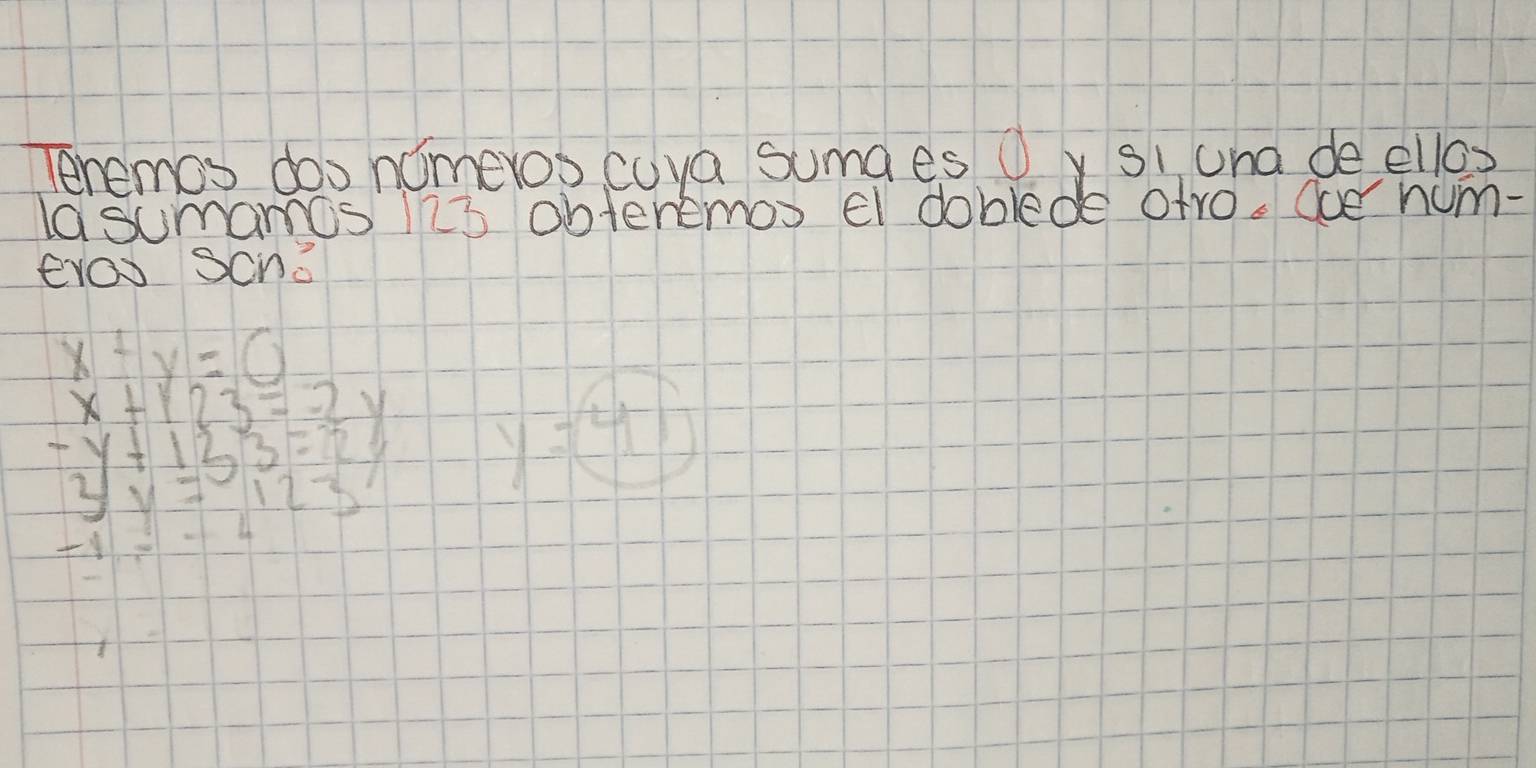 Tenemos dos números cuya suma es 0 y si una de ellos
la sumamos 123 obtenemos el doble de otro. Que núm-
eros son?
x + y = 0
x + 123 = 2y
-y + 123 = 2y
3y = 123
y = 41